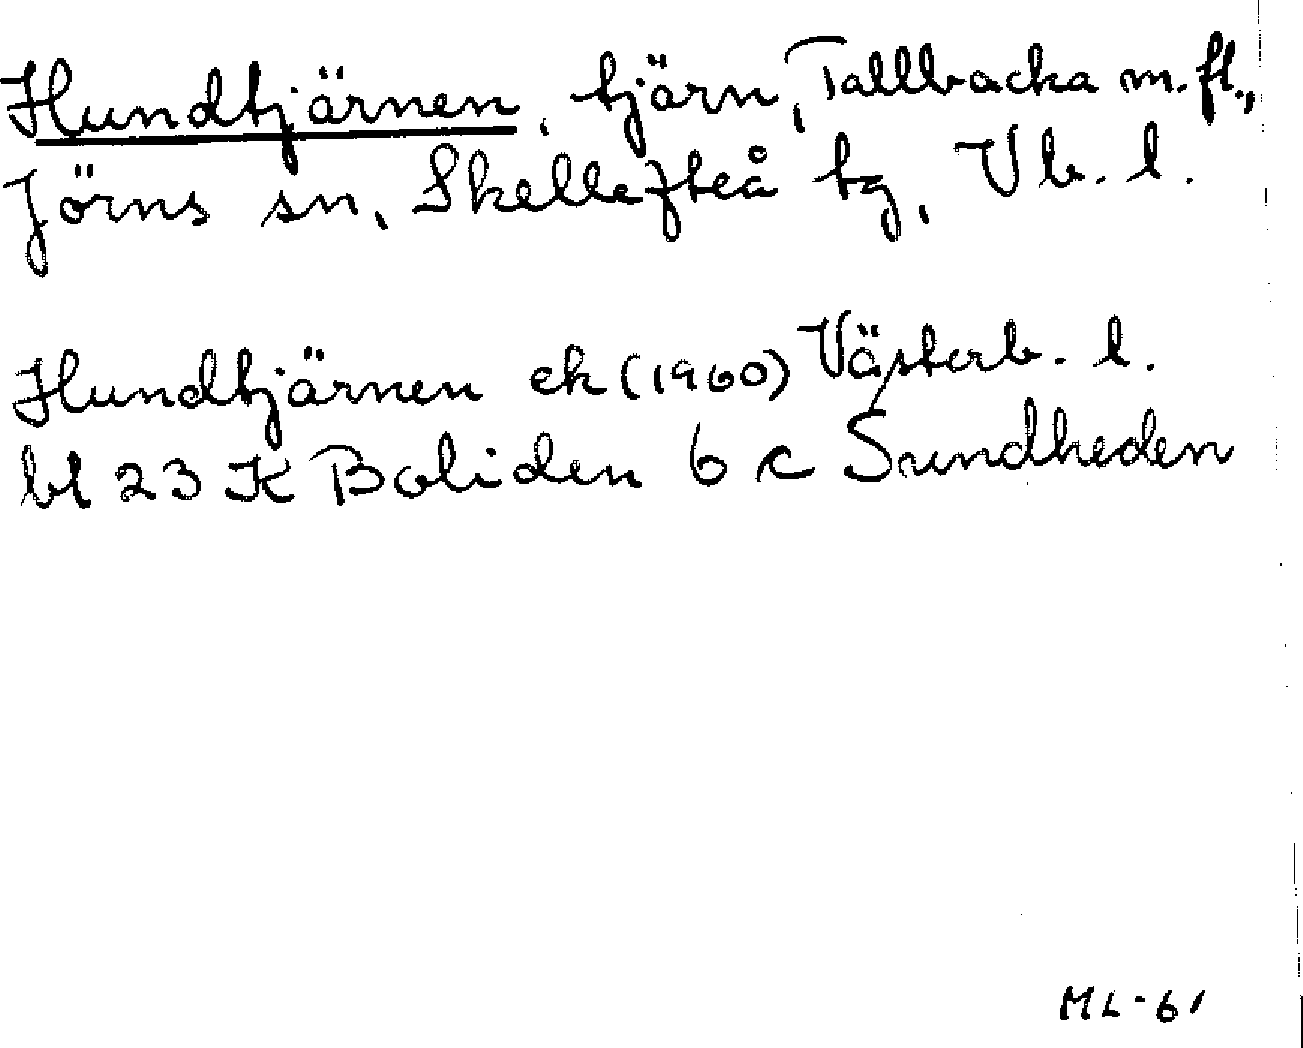 Hundtjärnen, tjärn, Tallbacka m.fl.,
Jörns sn, Skellefteå tg, Vb. l.
Hundtjärnen ek (1960) Västerb. l.
bl 23 K Boliden 6 c Sundheden
ML-61